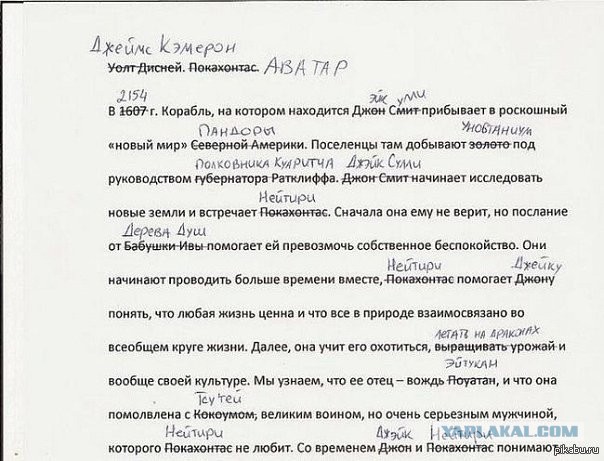 Джеймс Кэмерон
Уолт Дисней. Покахонтас. АВАТАР
2154 эйк улли
В 1607 г. Корабль, на котором находится Джон Смит прибывает в роскошный
Пандоры Унобтаниум
«новый мир» Северной Америки. Поселенцы там добывают золото под
полковника Куаритча Джэйк Сулли
руководством губернатора Ратклиффа. Джон Смит начинает исследовать
Нейтири
новые земли и встречает Покахонтас. Сначала она ему не верит, но послание
Дерева Душ
от Бабушки Ивы помогает ей превозмочь собственное беспокойство. Они
Нейтири Джейку
начинают проводить больше времени вместе, Покахонтас помогает Джону
понять, что любая жизнь ценна и что все в природе взаимосвязано во
летать на драконах
всеобщем круге жизни. Далее, она учит его охотиться, выращивать урожай и
Эйтукан
вообще своей культуре. Мы узнаем, что ее отец – вождь Поуатан, и что она
Тсу'тей
помолвлена с Кокоумом, великим воином, но очень серьезным мужчиной,
Нейтири Джэйк Нейтири
которого Покахонтас не любит. Со временем Джон и Покахонтас понимают,
YAPLAKAL.COM
pikabu.ru